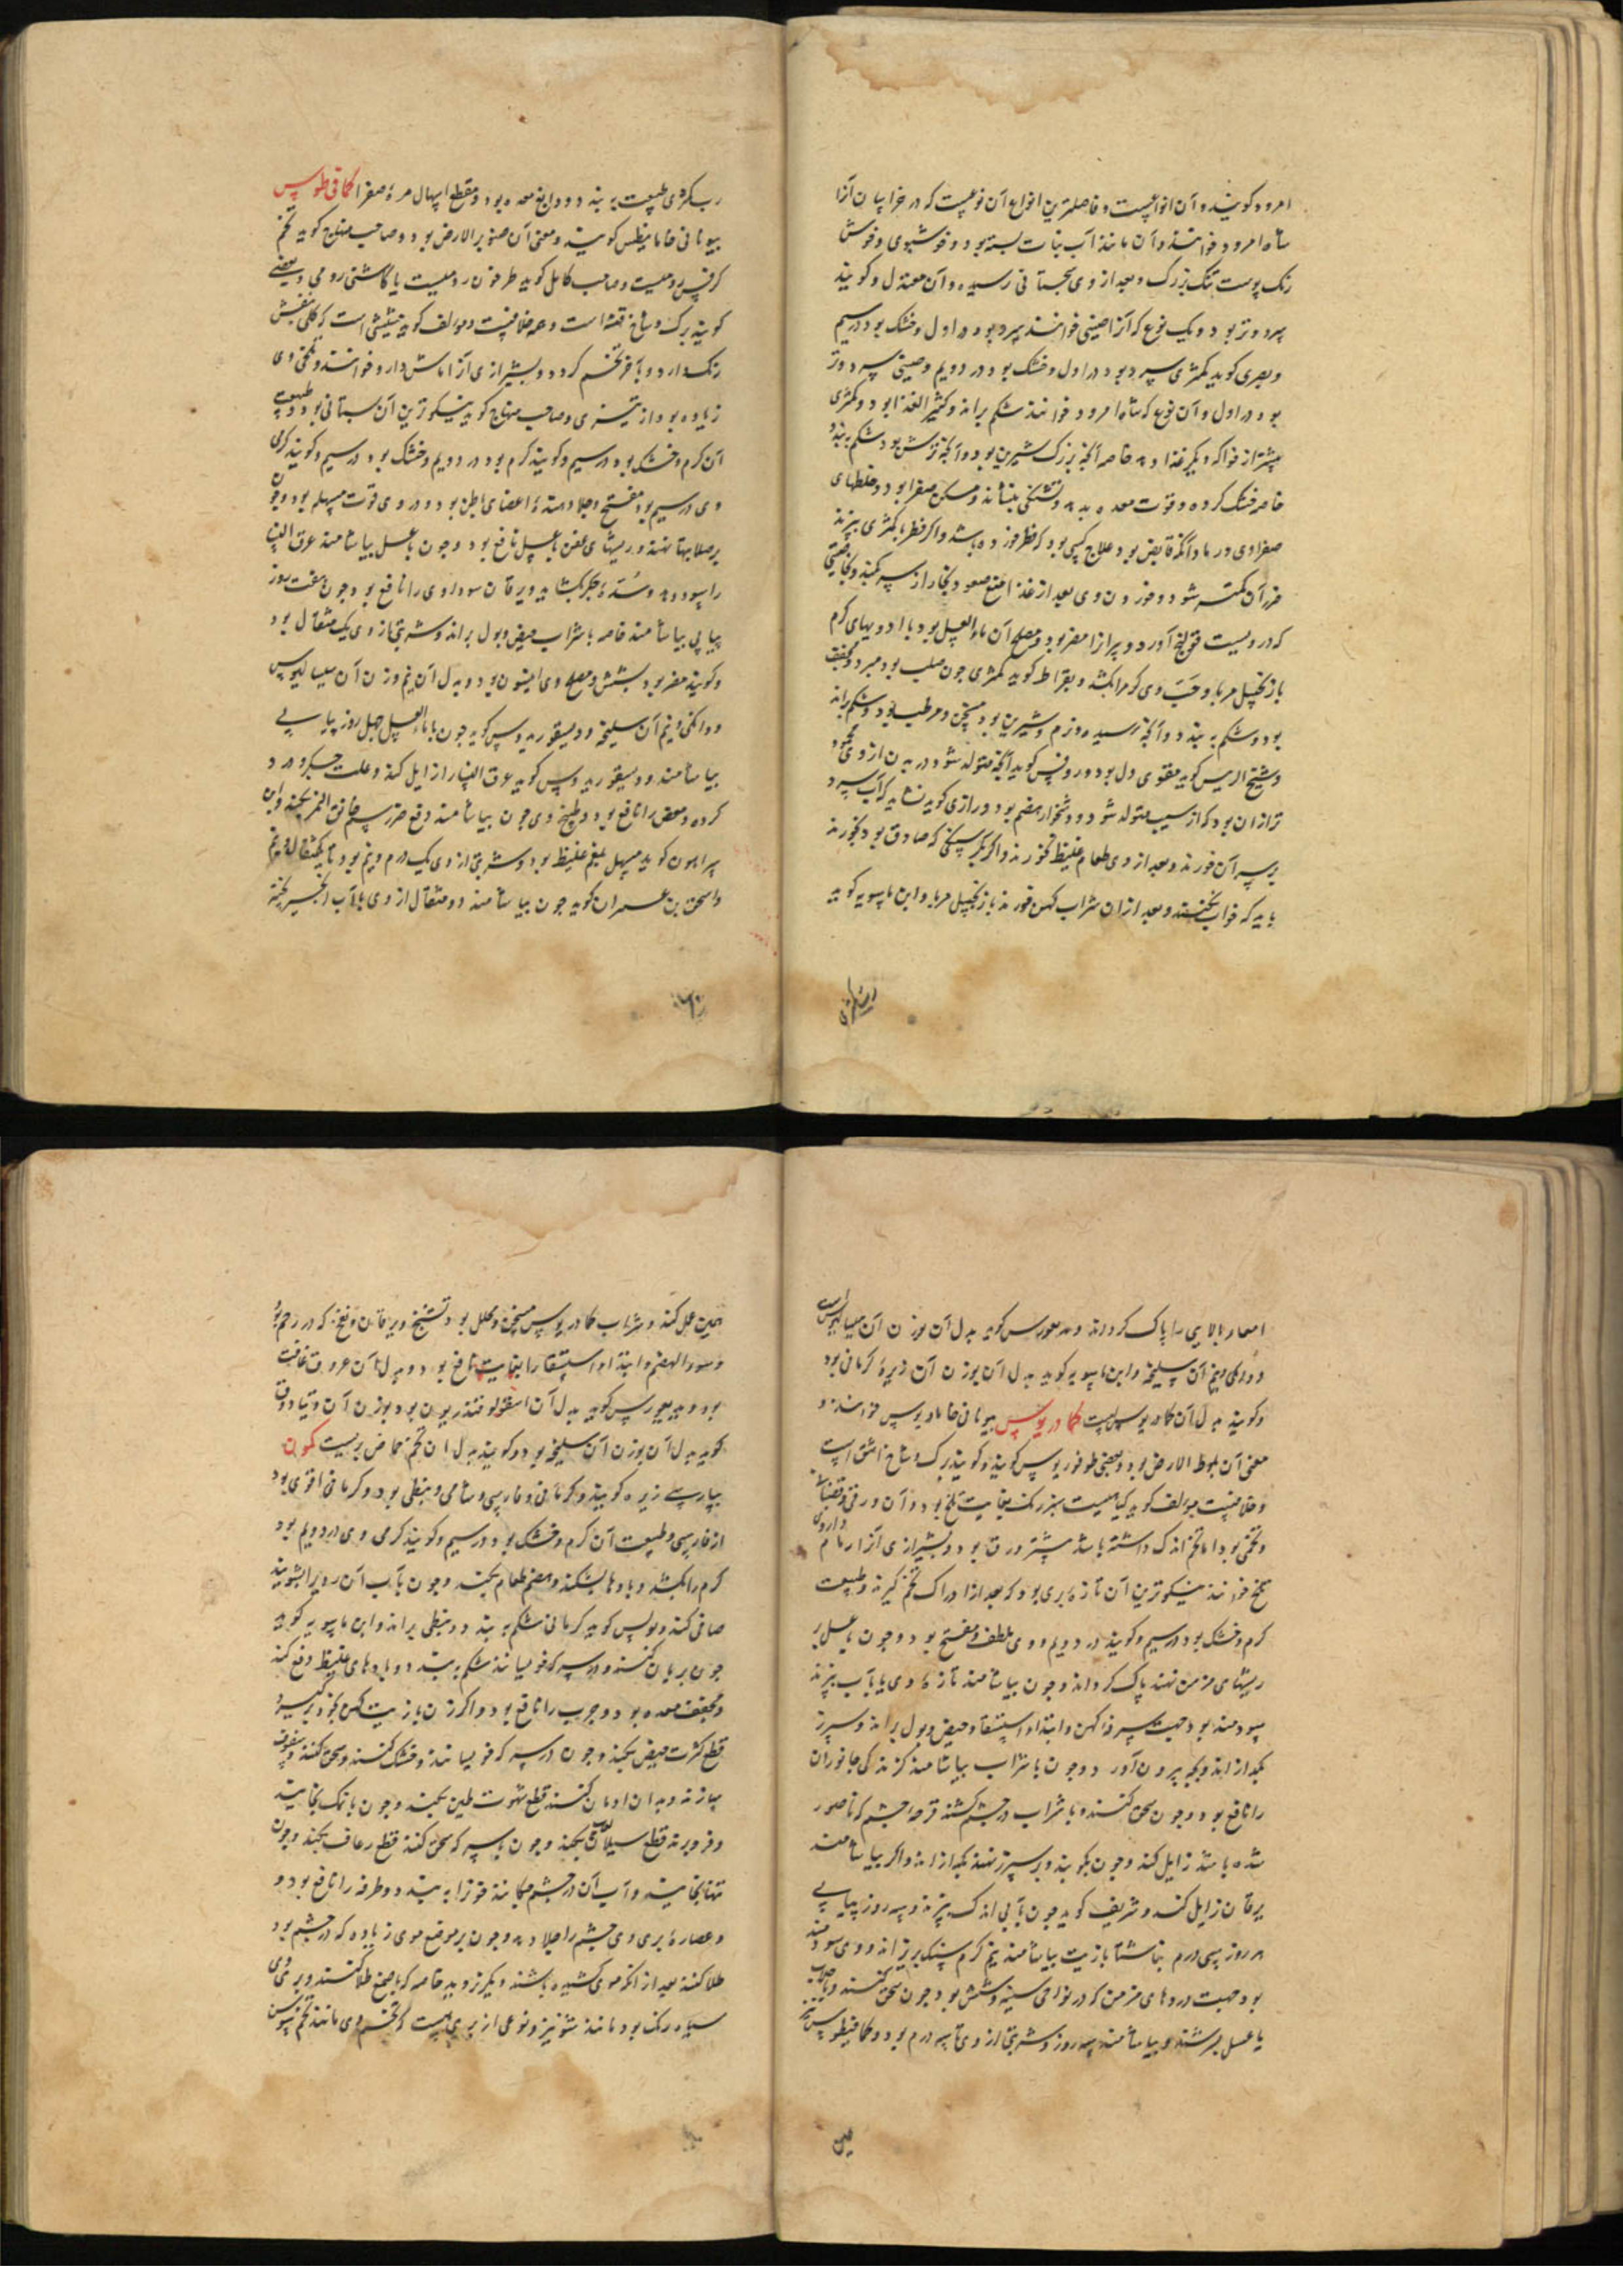 امرود کویند و آن انواعست و فاضلترین انواع آن نوعیست که در خراسان آنرا
شاه امرود خوانند و آن مانند آب نبات بسته بود و خوشبوی و خوش
رنک پوست تنک بزرک و بعد از وی سجستانی رسیده و آن معتدل و کویند
سرد و تر بود و یک نوع که آنرا صینی خوانند سرد بود در اول و خشک بود در سیم
و بصری کوید کمثری سرد بود در اول و خشک بود در دویم و صینی سرد و تر
بود در اول و آن نوع که شاه امرود خوانند شکم براند و کثیر الغذا بود و کمثری
بیشتر از فواکه دیکر غذا دهد خاصه آنچه بزرک شیرین بود و آنچه ترش بود شکم ببندد
خاصه خشک کرده و قوت معده بدهد و تشنکی بنشاند و مسکن صفرا بود و خلطهای
صفراوی و رمادا کر قابض بود و علاج کسی بود که فطر خورده باشد و اکر فطر با کمثری بپزند
ضرر آن کمتر شود و خوردن وی بعد از غذا منع صعود بخار از سر بکند و بخاصیتی
که در ویست قولنج آورد و پیرانرا مضر بود و مصلح آن ماء العسل بود یا ادویهای کرم
یا زنجبیل مربا و حب وی کرم را بکشد و بقراط کوید کمثری چون صلب بود مبرد و مجفف
بود و شکم ببندد و آنچه رسیده و نرم و شیرین بود مسخن و مرطب بود و شکم براند
و شیخ الرییس کوید مقوی دل بود و روفس کوید آنچه متولد شود در بدن از وی محمود
تر از آن بود که از سیب متولد شود و دشخوار هضم بود و رازی کوید نشاید که آب سرد
بر سر آن خورند و بعد از وی طعام غلیظ نخورند و اکر بر کرسنکی که صادق بود بخورند
باید که خواب نکنند و بعد از آن شراب کهن خورند یا زنجبیل مربا و ابن ماسویه کوید
رب کمثری طبیعت ببندد و دابغ معده بود و مقطع اسهال مرهٔ صفرا کمافیطوس
بیونانی خامانیطس کویند و معنی آن صنوبر الارض بود و صاحب منهاج کوید تخم
کرفس رومیست و صاحب کامل کوید طرخون رومیست یا کاشنی رومی و بعضی
کویند برک و شاخ قثفا است و همه خلافست و مولف کوید حشیشی است که کلی بنفش
رنک دارد و بآخر تخم کردد و بشیرازی آنرا ماش دارو خوانند و تلخی وی
زیاده بود از تیزی و صاحب منهاج کوید نیکوترین آن بستانی بود و طبیعت
آن کرم و خشک بود در سیم و کویند کرم بود در دویم و خشک بود در سیم و کویند کرمی
وی در سیم بود مفتح و جلا دهندهٔ اعضای باطن بود و در وی قوت مسهله بود و چون
بر صلابتها نهند و ریشهای عفن با عسل نافع بود و چون با عسل بیاشامند عرق النسا
را سود دهد و سدهٔ جکر بکشاید و یرقان سوداوی را نافع بود چون هفت روز
پیاپی بیاشامند خاصه با شراب حیض و بول براند و شربتی از وی یک مثقال بود
و کویند مضر بود بشش و مصلح وی انیسون بود و بدل آن نیم وزن آن سیسالیوس
و دانکی و نیم آن سلیخه و دیسقوریدوس کوید چون با ماء العسل چهل روز پیاپی
بیاشامند و دیسقوریدوس کوید عرق النسا را زایل کند و علت جکر و درد
کرده و مغص را نافع بود و طبیخ وی چون بیاشامند دفع ضرر سم خانق النمر بکند و ابن
سراپیون کوید مسهل بلغم غلیظ بود و شربتی از وی یک درم و نیم بود تا یکمثقال و نیم
و اسحق بن عمران کوید چون بیاشامند دو مثقال از وی با آب انجیر پخته
امعاء بالایی را پاک کرداند و کوید بدل آن بوزن آن سیسالیوس است
و دانکی و نیم آن سلیخه و ابن ماسویه کوید بدل آن بوزن آن زیرهٔ کرمانی بود
و کویند بدل آن کمادریوسست کمادریوس بیونانی خامادریوس خوانند و
معنی آن بلوط الارض بود و بعضی طوفوریوس کویند و کویند برک و شاخ اشق است
و خلافست مولف کوید کیاهیست سبز رنک بغایت تلخ بود و آن ورقی و قضبانی
و تخمی بود اما تخم اندک داشته باشد بیشتر ورق بود و بشیرازی آنرا رمام داروی
تلخ خوانند نیکوترین آن تازه بری بود که بعد از ادراک تخم کیرند و طبیعت
کرم و خشک بود در سیم و کویند در دویم و وی ملطف و مفتح بود و چون با عسل بر
ریشهای مزمن نهند پاک کرداند و چون بیاشامند تازهٔ وی یا با آب بپزند
سودمند بود جهت سرفهٔ کهن و ابتداء استسقا و حیض و بول براند و سپرز
بکدازاند و بچه بیرون آورد و چون با شراب بیاشامند کزندکی جانوران
را نافع بود و چون سحق کنند و با شراب در چشم کشند قرحهٔ چشم که ناصور
شده باشد زایل کند و چون بکوبند و بر سپرز نهند بکدازاند و اکر بیاشامند
یرقان زایل کند و شریف کوید چون با آبی اندک بپزند و سه روز پیاپی
هر روز سی درم ناشتا با زیت بیاشامند نیم کرم سنک بریزاند و وی سودمند
بود جهت دردهای مزمن که در نواحی سینه و شش بود چون سحق کنند و با جلاب
یا عسل بسرشند و بیاشامند سه روز و شربتی از وی تا سه درم بود و کمافیطوس نیز
همین عمل کند و شراب کمادریوس مسخن و محلل بود و تشنج و یرقان و نفخ که در رحم بود
و سوء الهضم و ابتداء استسقا را بغایت نافع بود و بدل آن عروق غافت
بود و کوید بدل آن اسقولوقندریون بود بوزن آن و تیادوق
کوید بدل آن بوزن آن سلیخه بود و کویند بدل آن تخم حماض بریست کمون
بپارسی زیره کویند و کرمانی و فارسی و شامی و نبطی بود و کرمانی اقوی بود
از فارسی و طبیعت آن کرم و خشک بود در سیم و کویند کرمی وی در دویم بود
کرم را بکشد و بادها بشکند و هضم طعام بکند و چون بآب آن روی را بشویند
صافی کند و بولس کوید کرمانی شکم ببندد و نبطی براند و ابن ماسویه کوید
چون بریان کنند و در سرکه خویسانند شکم ببندد و بادهای غلیظ دفع کند
و مجفف معده بود و جرب را نافع بود و اکر زن با زیت کهن بخود برکیرد
قطع کثرت حیض بکند و چون در سرکه خویسانند و خشک کنند و سحق کنند و سفوف
سازند و بدان ادمان کنند قطع شهوت طین بکند و چون با نمک بخایند
و فرو برند قطع سیلان لعاب بکند و چون با سرکه سحق کنند قطع رعاف بکند و چون
تنها بخایند و آب آن در چشم چکانند خون را ببندد و طرفه را نافع بود و
و عصارهٔ بری وی چشم را جلا دهد و چون بر موضع موی زیاده که در چشم بود
طلا کنند بعد از آنکه موی کشیده باشند دیکر نروید خاصه که با صمغ طلا کنند و بری وی
سیاه رنک بود مانند شونیز و نوعی از بری هست که تخم وی مانند تخم سوسن
همین